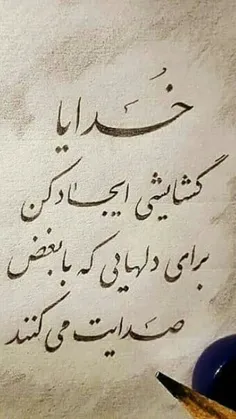 خُدایا
گشایشی ایجاد کن
برای دلهایی که با بغض
صدایت می کنند